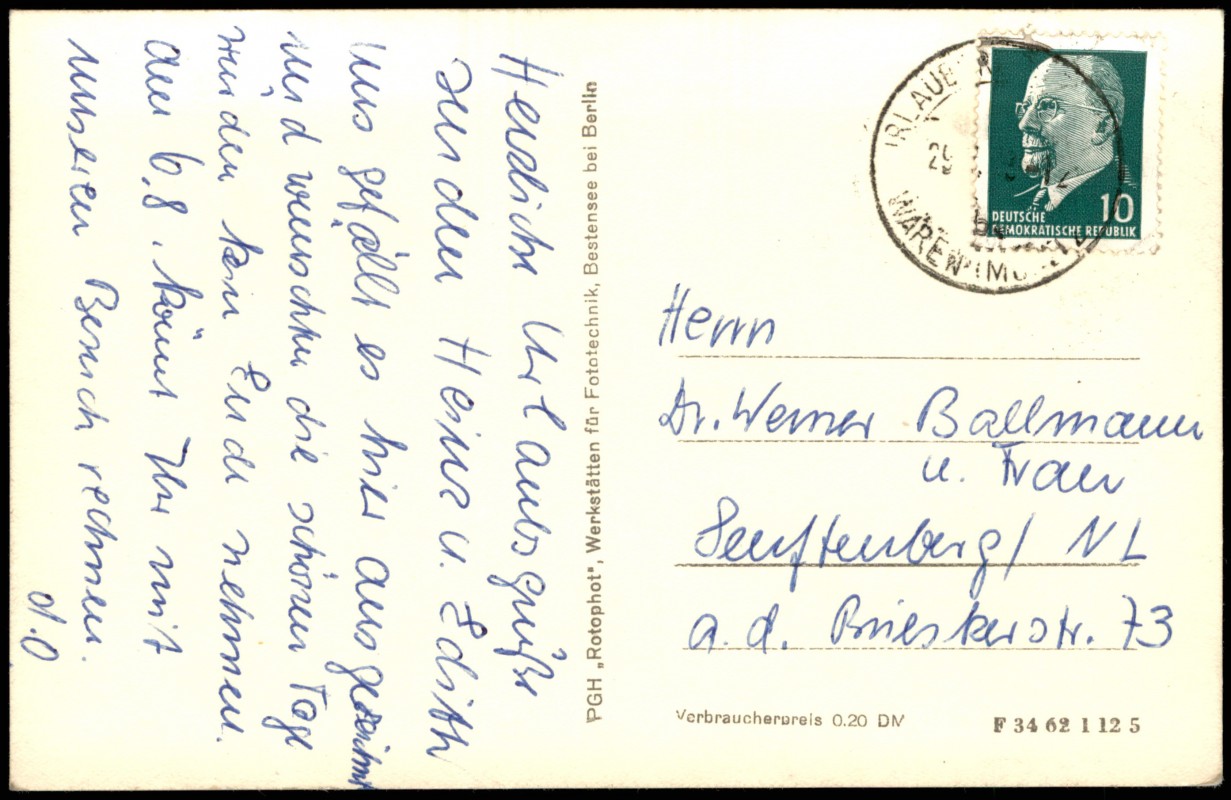 Herzliche Urlaubsgrüße
senden Heinz u. Edith
Uns gefällt es hier ausgezeichnet
und wünschten die schönen Tage
würden kein Ende nehmen.
Am 6.8. könnt Ihr mit
unseren Besuch rechnen.
d.O
PGH „Rotophot“, Werkstätten für Fototechnik, Bestensee bei Berlin
WAREN (MÜRITZ)
DEUTSCHE 10
DEMOKRATISCHE REPUBLIK
Herrn
Dr. Werner Ballmann
u. Frau
Senftenberg / NL
a. d. Brieskerstr. 73
Verbraucherpreis 0.20 DM
F 34 62 1 12 5